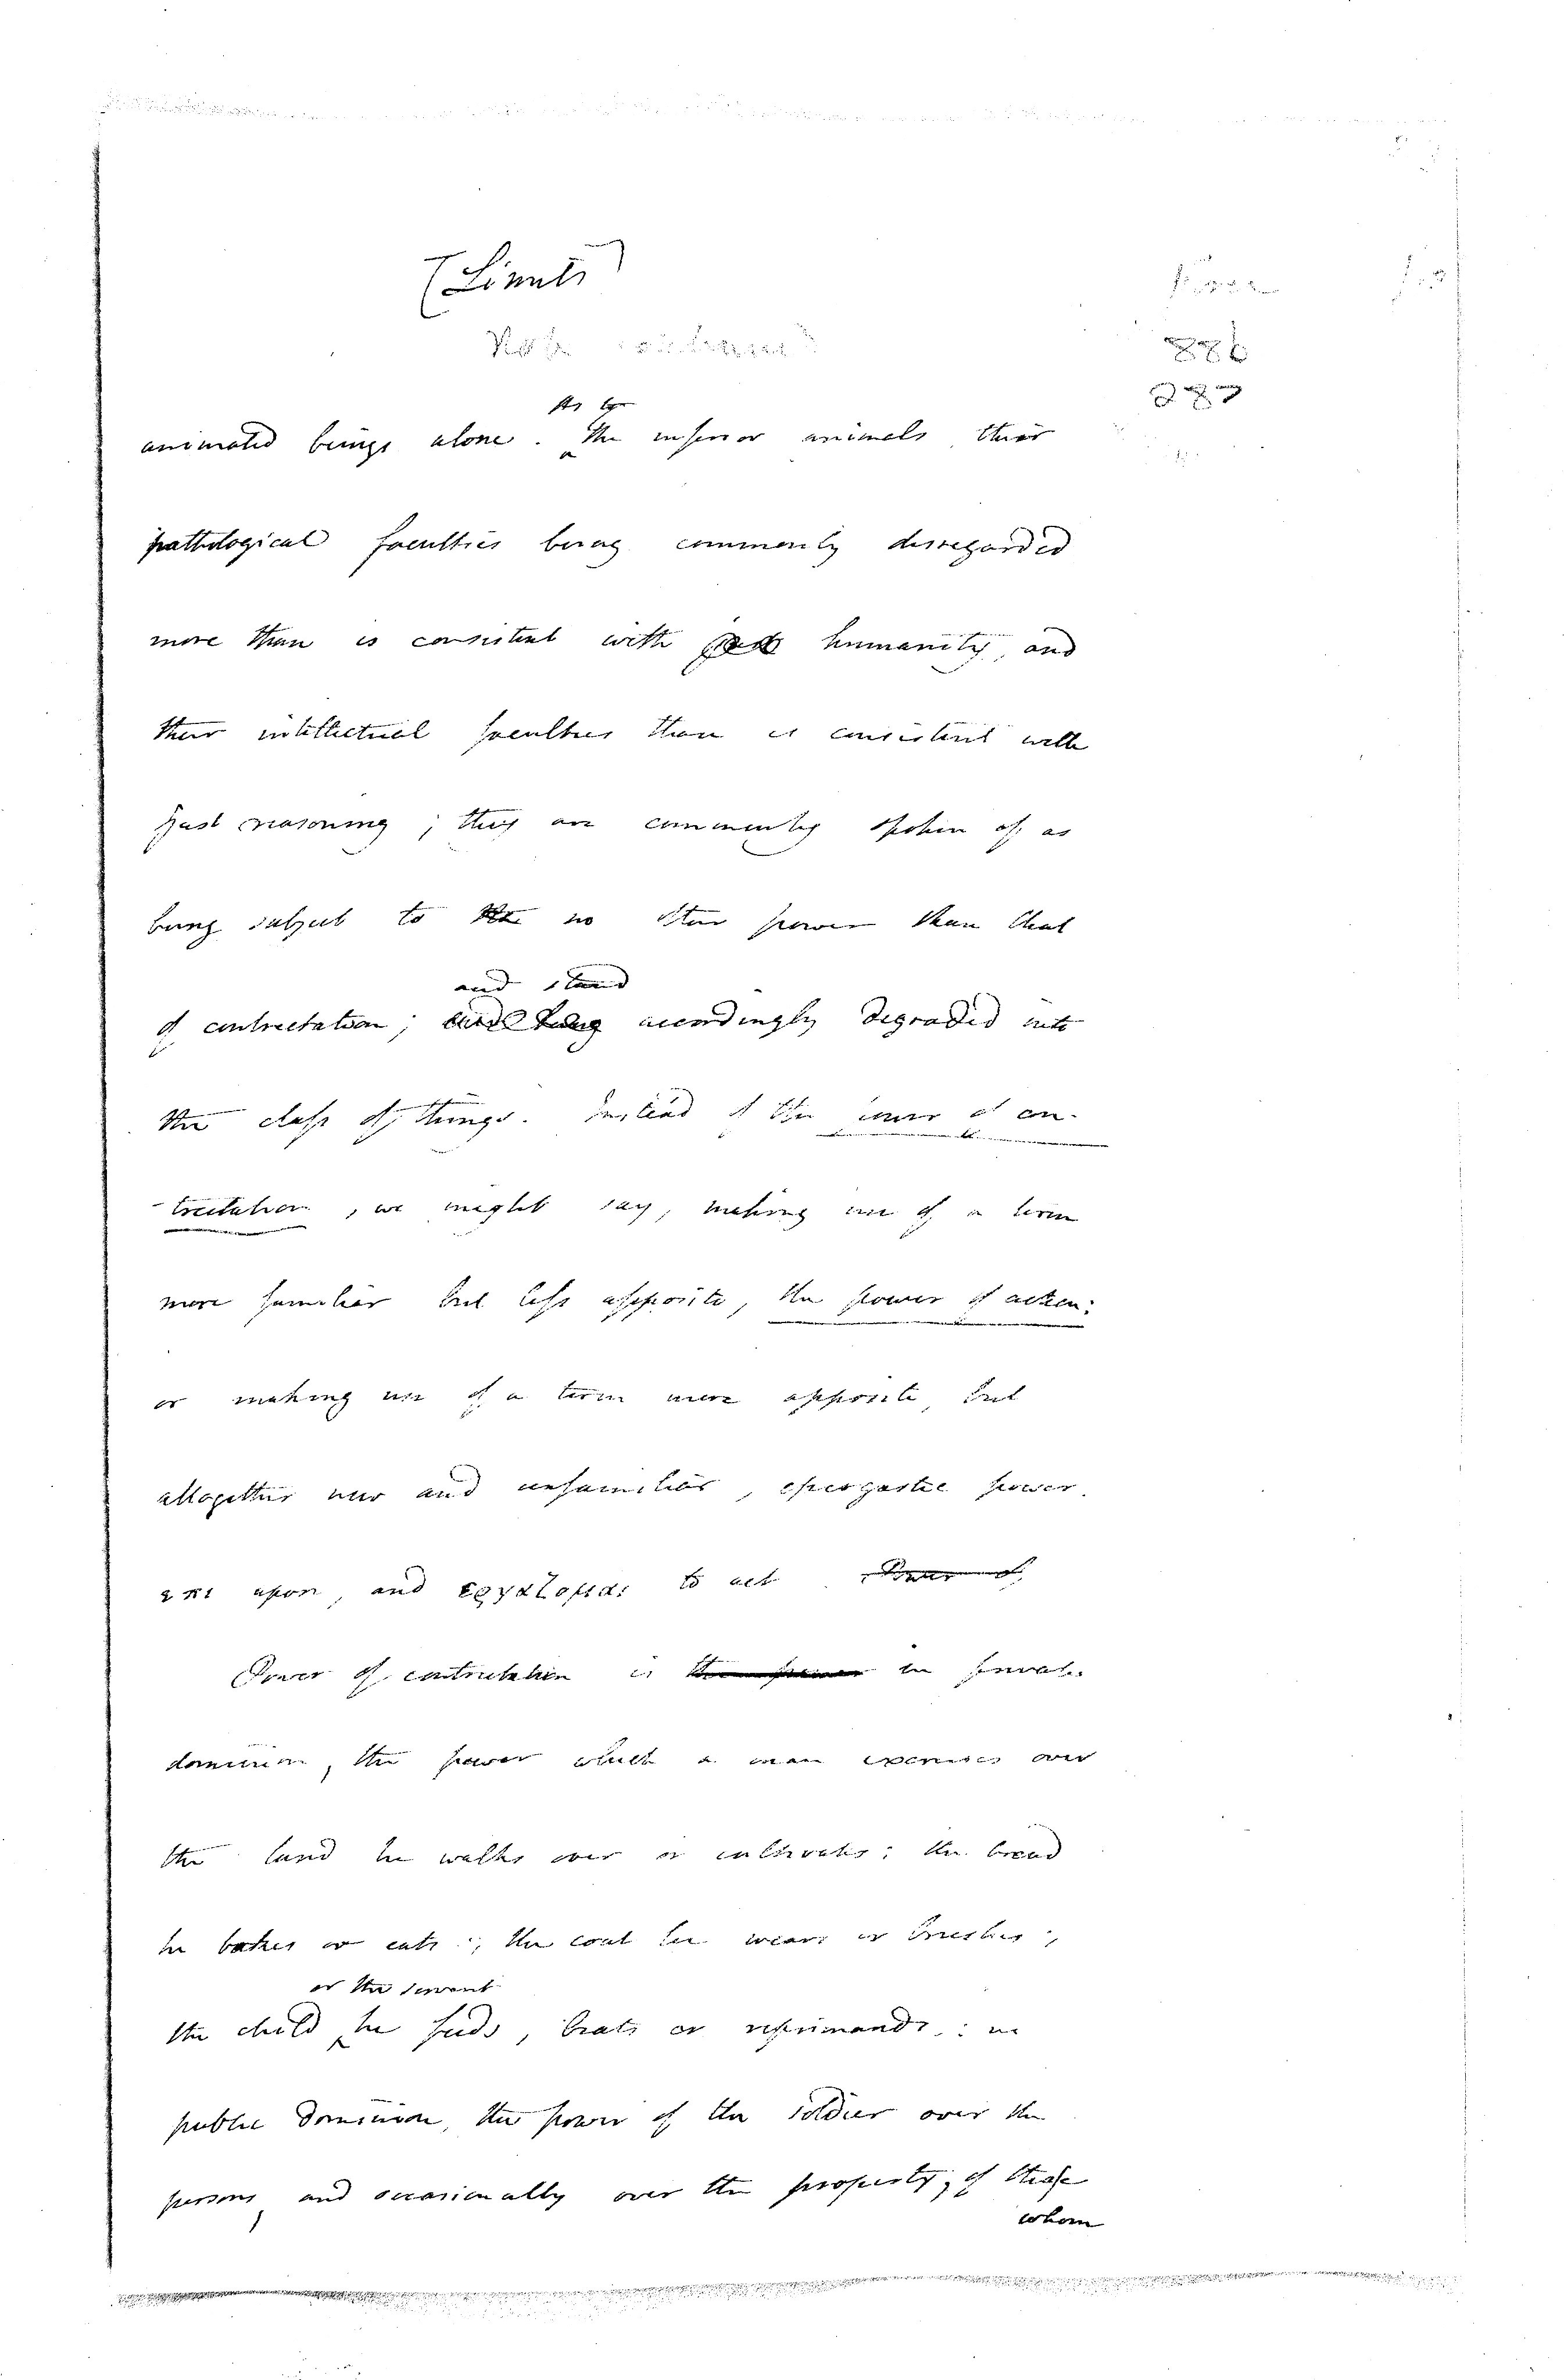 (Limits)
As to
animated beings alone. The inferior animals, their
pathological faculties being commonly disregarded
more than is consistent with humanity, and
their intellectual faculties than is consistent with
just reasoning; they are commonly spoken of as
being subject to the no other power than that
and stand
of contrectation; accordingly degraded into
the class of things. Instead of the power of con-
-trectation, we might say, making use of a term
more familiar but less apposite, the power of action:
or making use of a term more apposite, but
altogether new and unfamiliar, epergastic power.
επι upon, and εργαζομαι to act. Power of
Power of contrectation is the power in private
dominion, the power which a man exercises over
the land he walks over or cultivates; the bread
he bakes or eats; the coat he wears or brushes;
or the servant
the child he feeds, beats or reprimands: in
public dominion, the power of the soldier over the
persons, and occasionally over the property, of those
whom